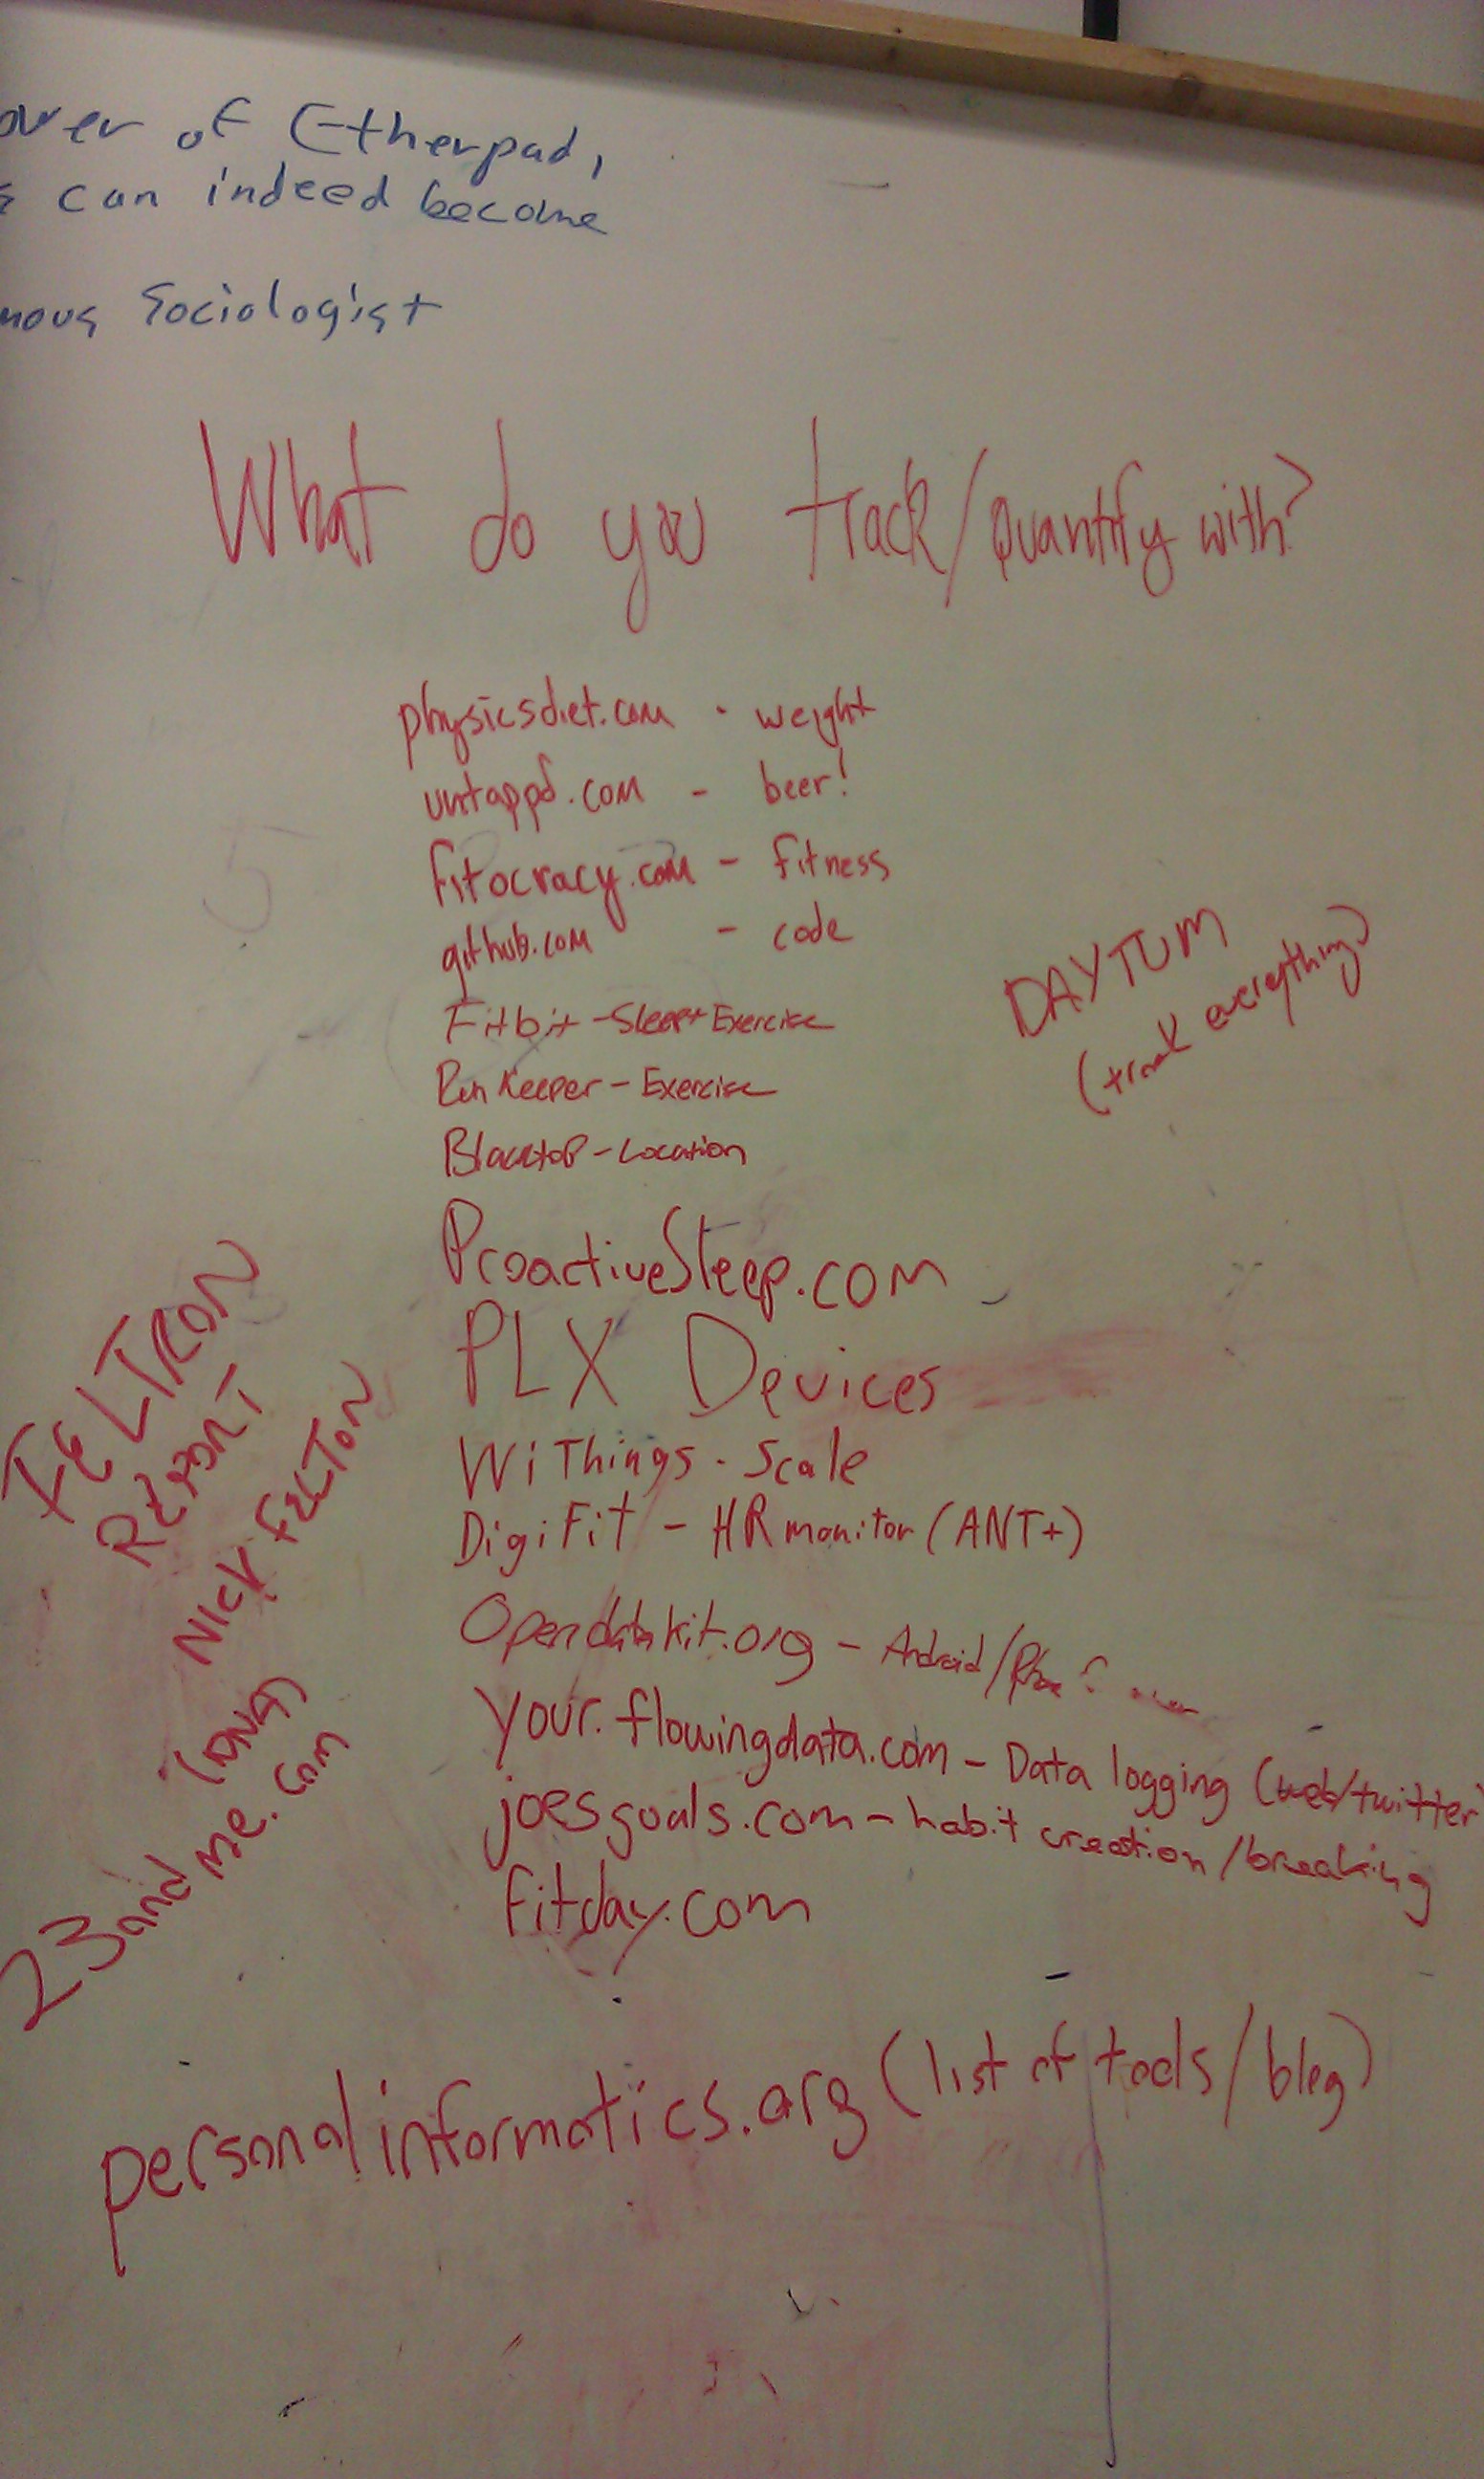 over of Etherpad,
can indeed become
Sociologist
What do you track/quantify with?
physicsdiet.com - weight
untappd.com - beer!
fitocracy.com - fitness
github.com - code
Fitbit - Sleep + Exercise
RunKeeper - Exercise
Blacktop - Location
DAYTUM
(track everything)
ProactiveSleep.com
PLX Devices
WiThings - Scale
DigiFit - HR monitor (ANT+)
Opendatakit.org - Android/
your.flowingdata.com - Data logging (web/twitter
joesgoals.com - habit creation/breaking
fitday.com
FELTRON
REPORT
NICK FELTON
(DNA)
23andme.com
personalinformatics.org (list of tools/blog)